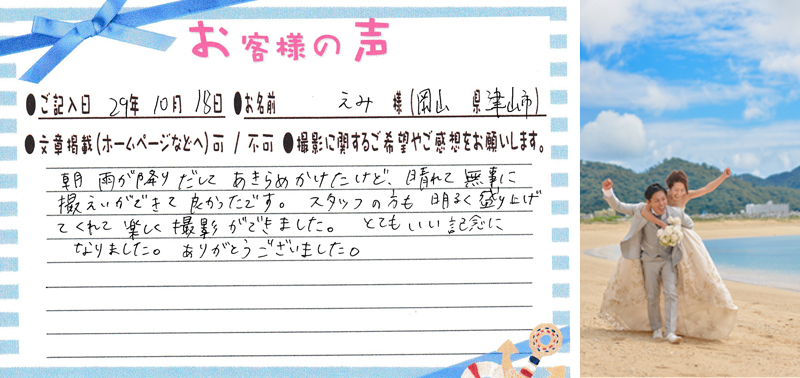 お客様の声
●ご記入日 29年 10月 18日 ●お名前 えみ 様 (岡山 県 津山市)
●文章掲載(ホームページなどへ)可 / 不可 ●撮影に関するご希望やご感想をお願いします。
朝 雨が降りだして あきらめかけたけど、晴れて 無事に
撮えいができて 良かったです。 スタッフの方も 明るく 盛り上げ
てくれて 楽しく 撮影 ができました。 とてもいい 記念に
なりました。 ありがとうございました。